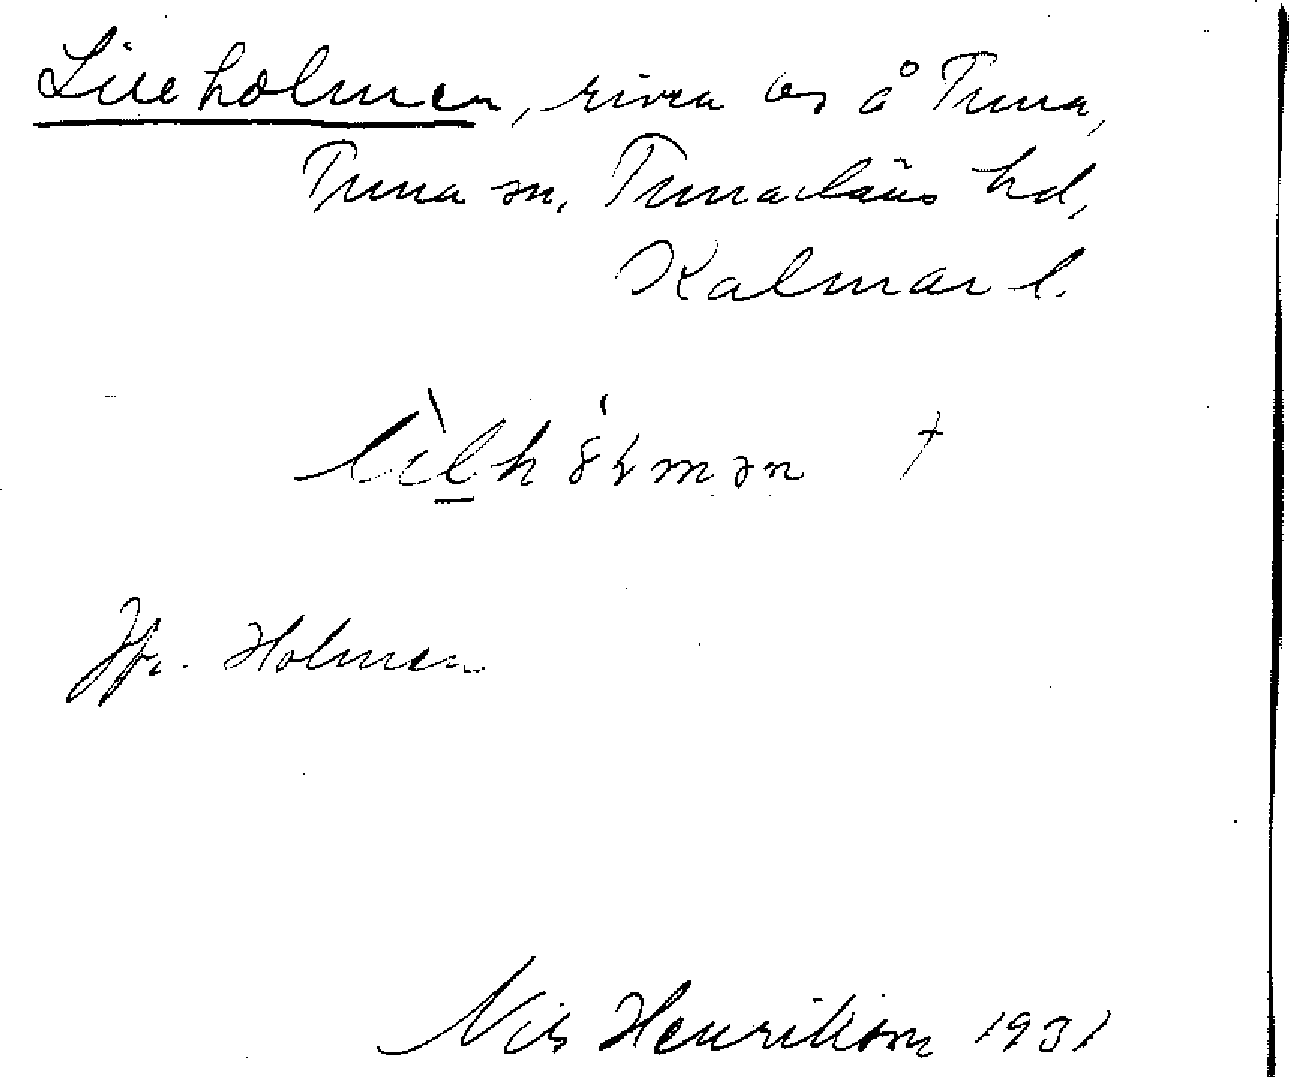 Lilleholmen, rivea lgh å Tuna,
Tuna sn, Tunaläns hd,
Kalmar l.
lìlhólmən †
Jfr. Holmen
Nils Henrikson 1931